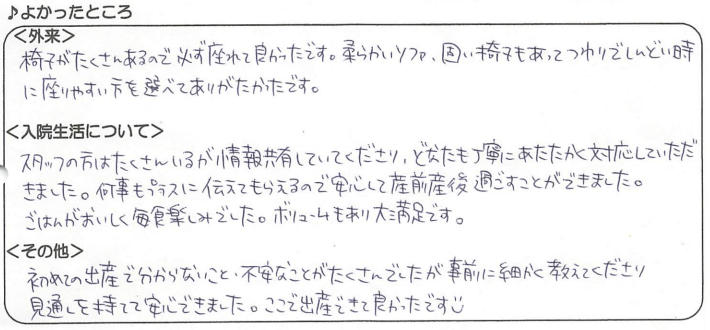 ♪よかったところ
<外来>
椅子がたくさんあるので必ず座れて良かったです。柔らかいソファ、固い椅子もあってつわりでしんどい時
に座りやすい方を選べてありがたかったです。
<入院生活について>
スタッフの方はたくさんいるが情報共有していてくださり、どなたも丁寧にあたたかく対応していただ
きました。何事もプラスに伝えてもらえるので安心して産前産後過ごすことができました。
ごはんがおいしく毎食楽しみでした。ボリュームもあり大満足です。
<その他>
初めての出産で分からないこと・不安なことがたくさんでしたが事前に細かく教えてくださり
見通しを持てて安心できました。ここで出産できて良かったです☺